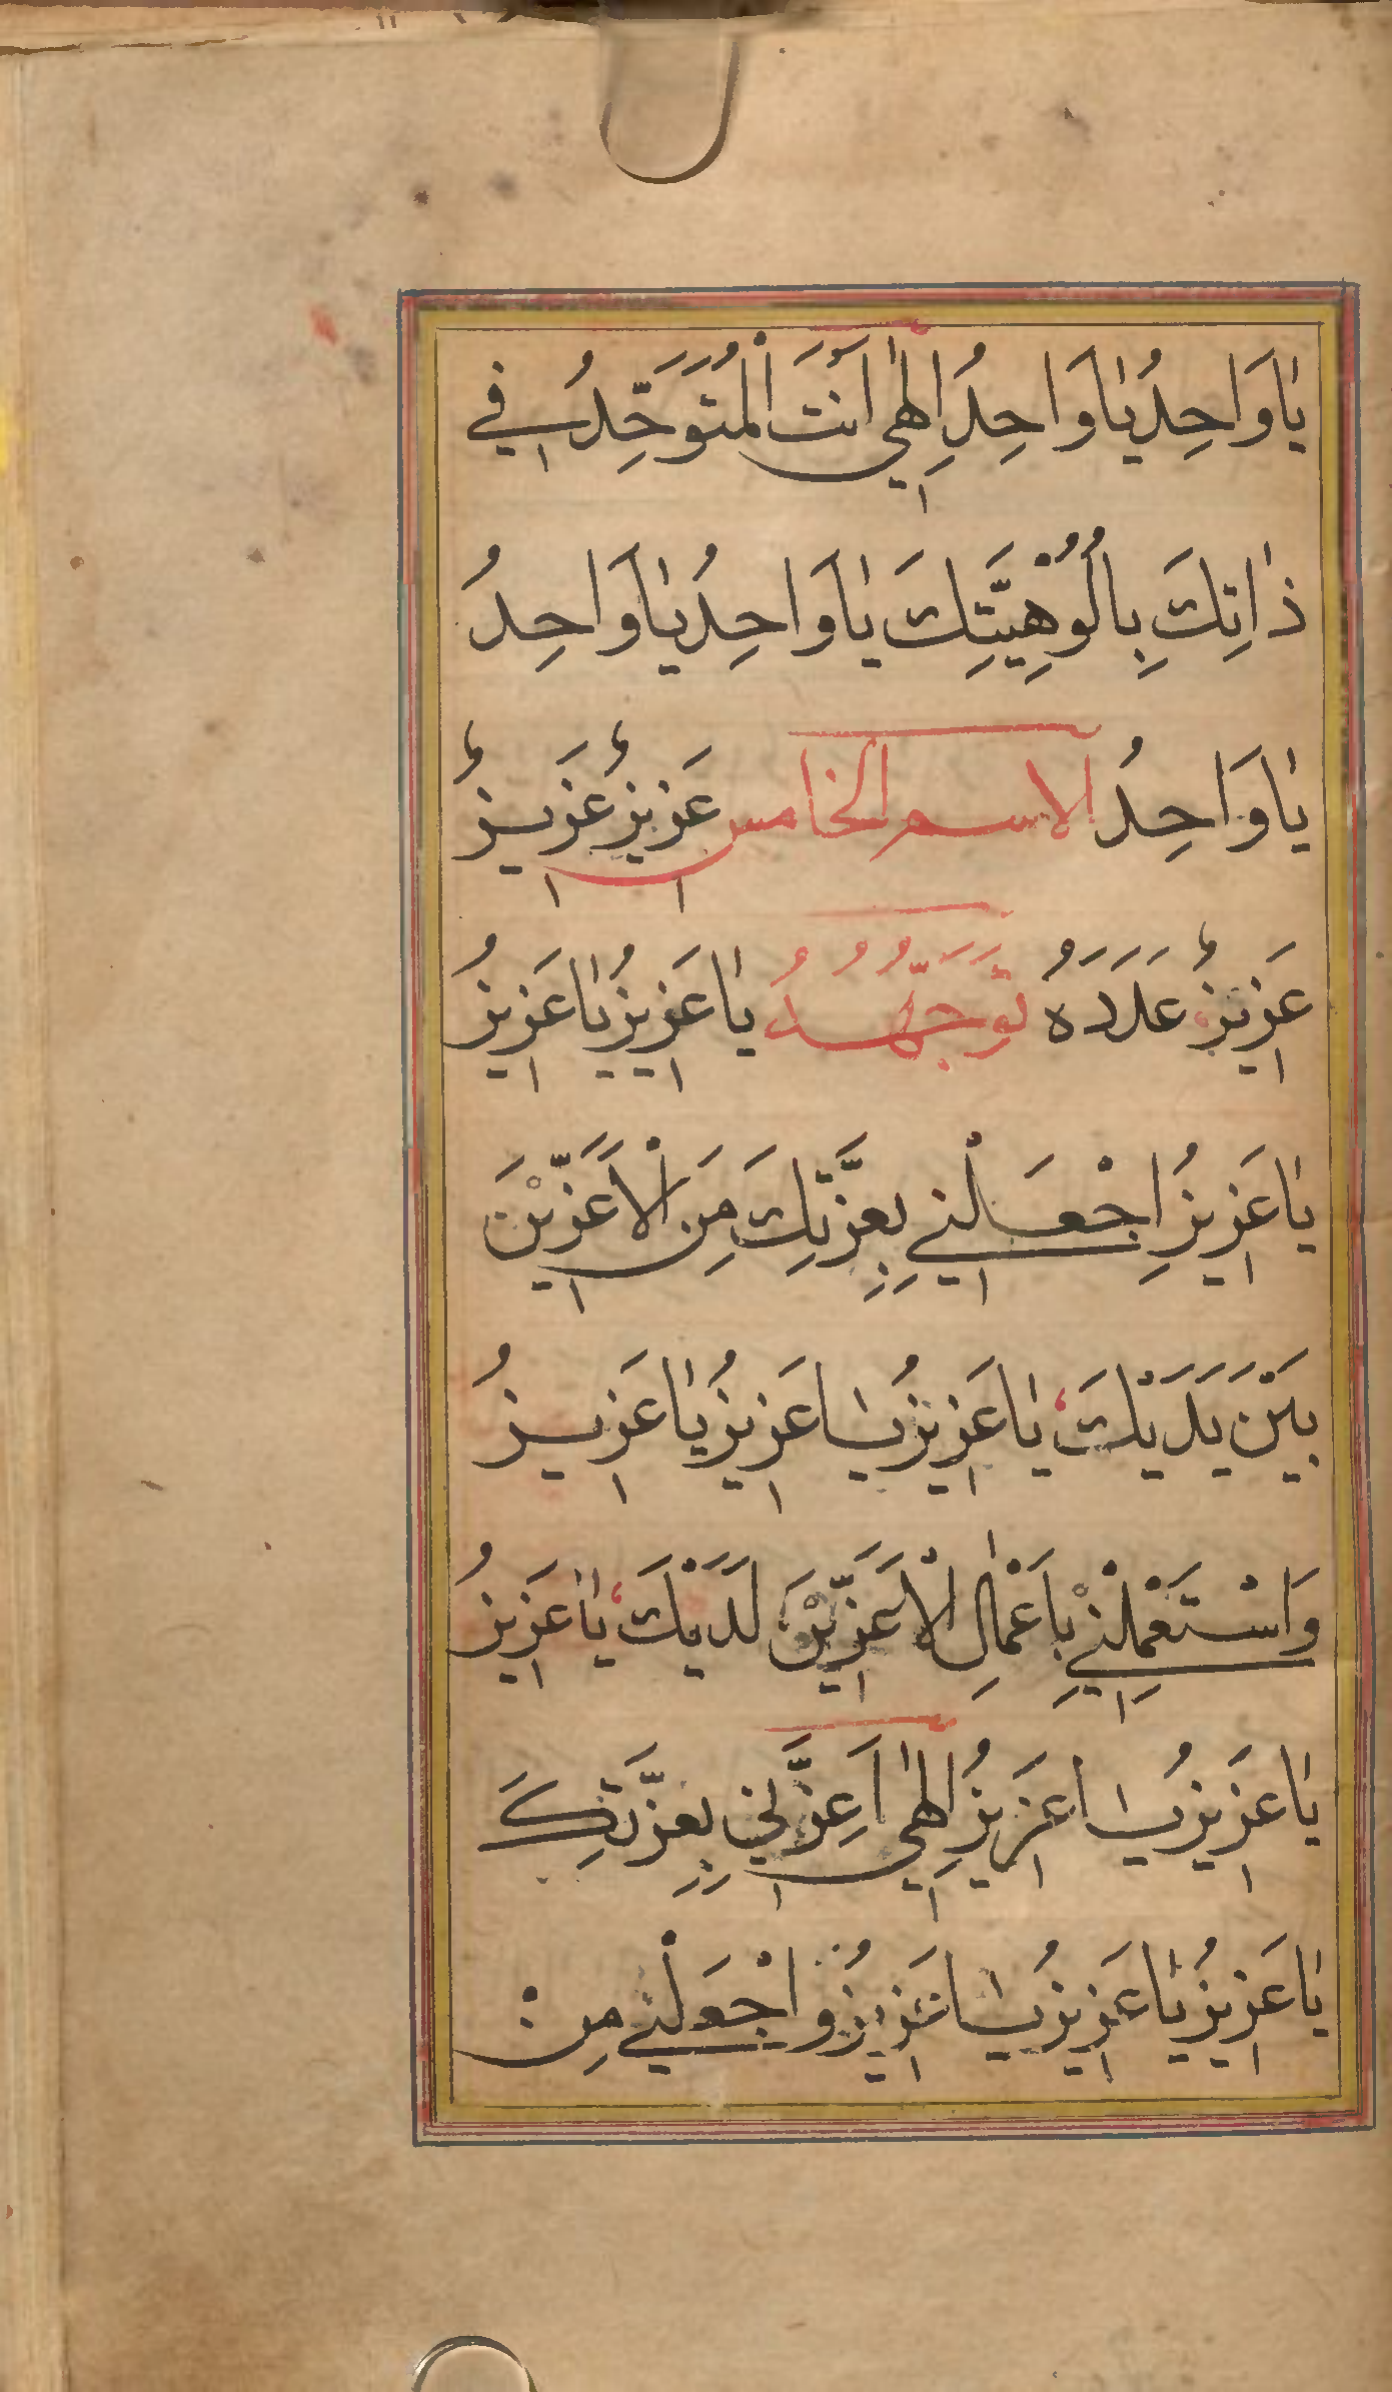 يَا وَاحِدُ يَا وَاحِدُ اِلٰهِي اَنْتَ الْمُتَوَحِّدُ فِي
ذَاتِكَ بِاُلُوْهِيَّتِكَ يَا وَاحِدُ يَا وَاحِدُ
يَا وَاحِدُ الاسم الخامس عَزِيزٌ عَزِيزٌ
عَزِيزٌ عَدَدَهُ تَوَجُّهُهُ يَا عَزِيزُ يَا عَزِيزُ
يَا عَزِيزُ اِجْعَلْنِي بِعِزَّتِكَ مِنَ الْاَعَزِّيْنَ
بَيْنَ يَدَيْكَ يَا عَزِيزُ يَا عَزِيزُ يَا عَزِيزُ
وَاسْتَعْمِلْنِي بِاَعْمَالِ الْاَعَزِّيْنَ لَدَيْكَ يَا عَزِيزُ
يَا عَزِيزُ يَا عَزِيزُ اِلٰهِي اَعِزَّنِي بِعِزَّتِكَ
يَا عَزِيزُ يَا عَزِيزُ يَا عَزِيزُ وَاجْعَلْنِي مِنْ